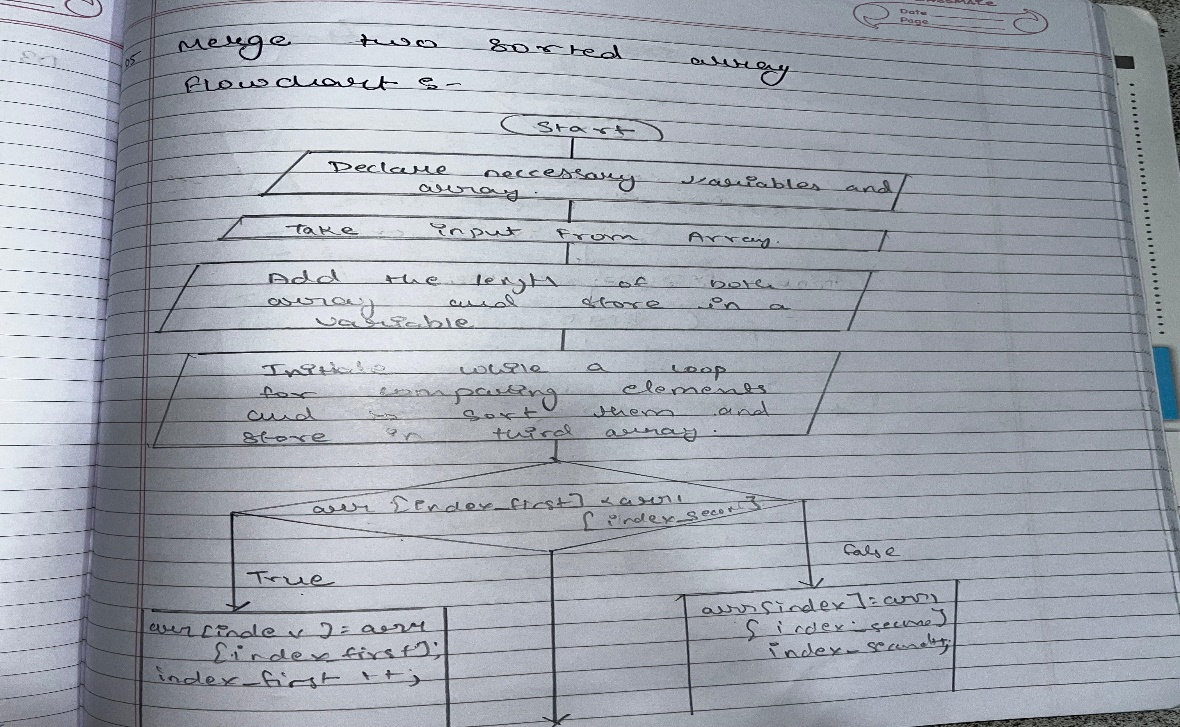 Date
Page
05 Merge two sorted array
flowchart :-
Start
Declare neccessary variables and
array.
Take input from Array.
Add the length of both
array and store in a
variable
Initiate while a loop
for comparing elements
and sort them and
store in third array.
arr [index_first] < arr1
[index_second]
True
False
arr[index] = arr
[index_first];
index_first ++;
arr[index] = arr1
[index_second]
index_second++;